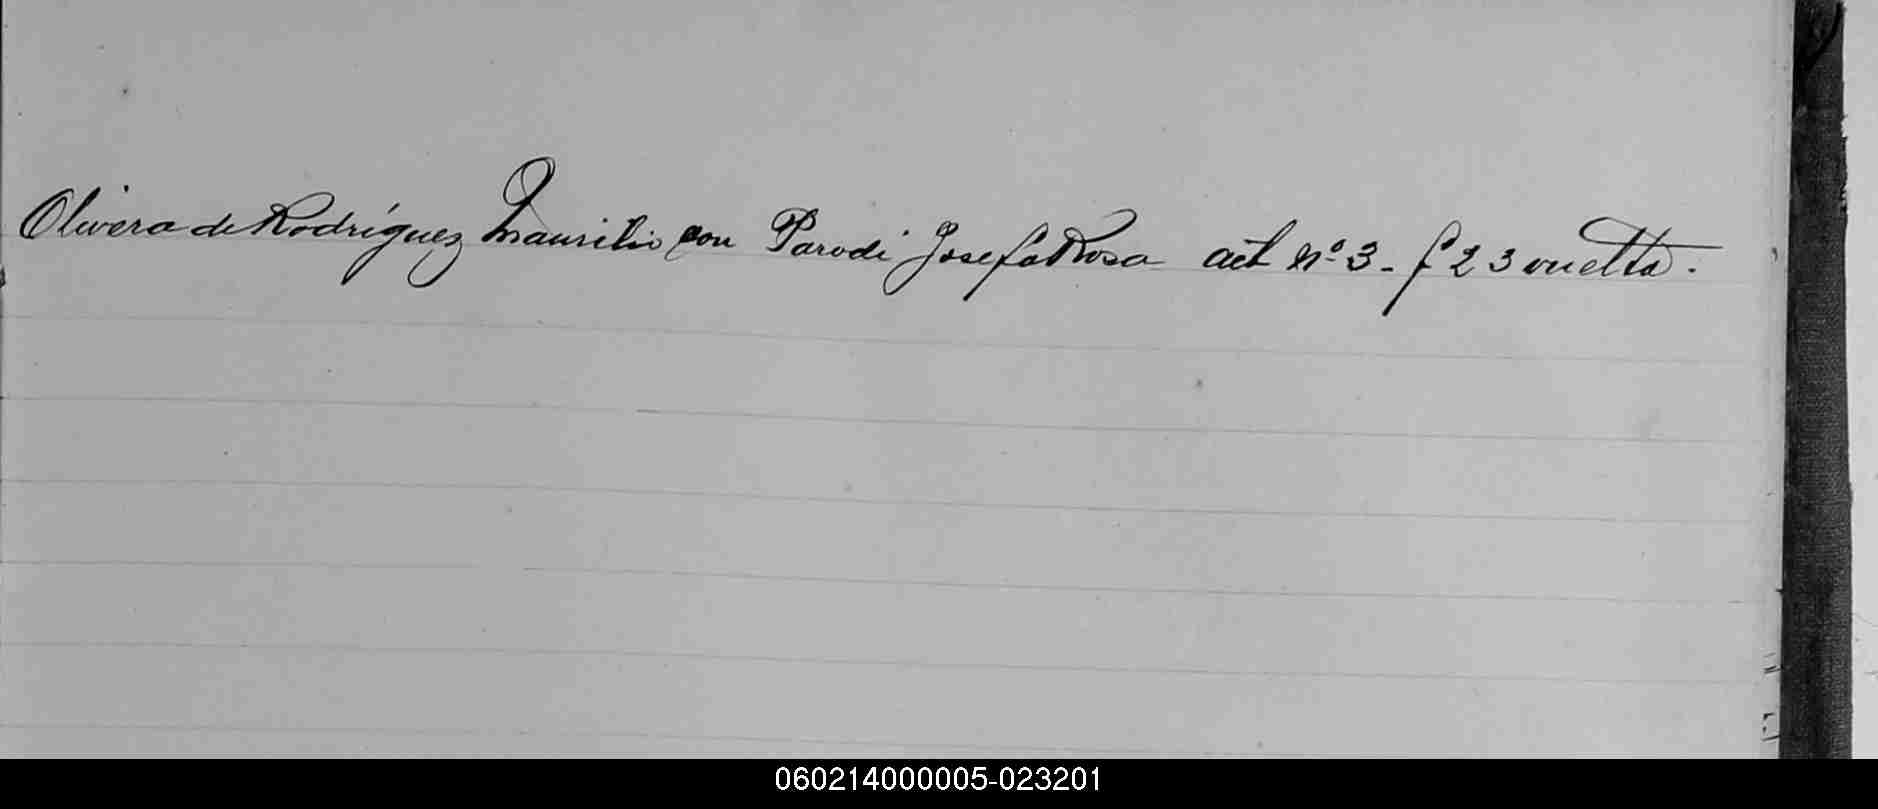 Olivera de Rodríguez Maurilio con Parodi Josefa Rosa act nº 3 - f 23 vuelta.
060214000005-023201